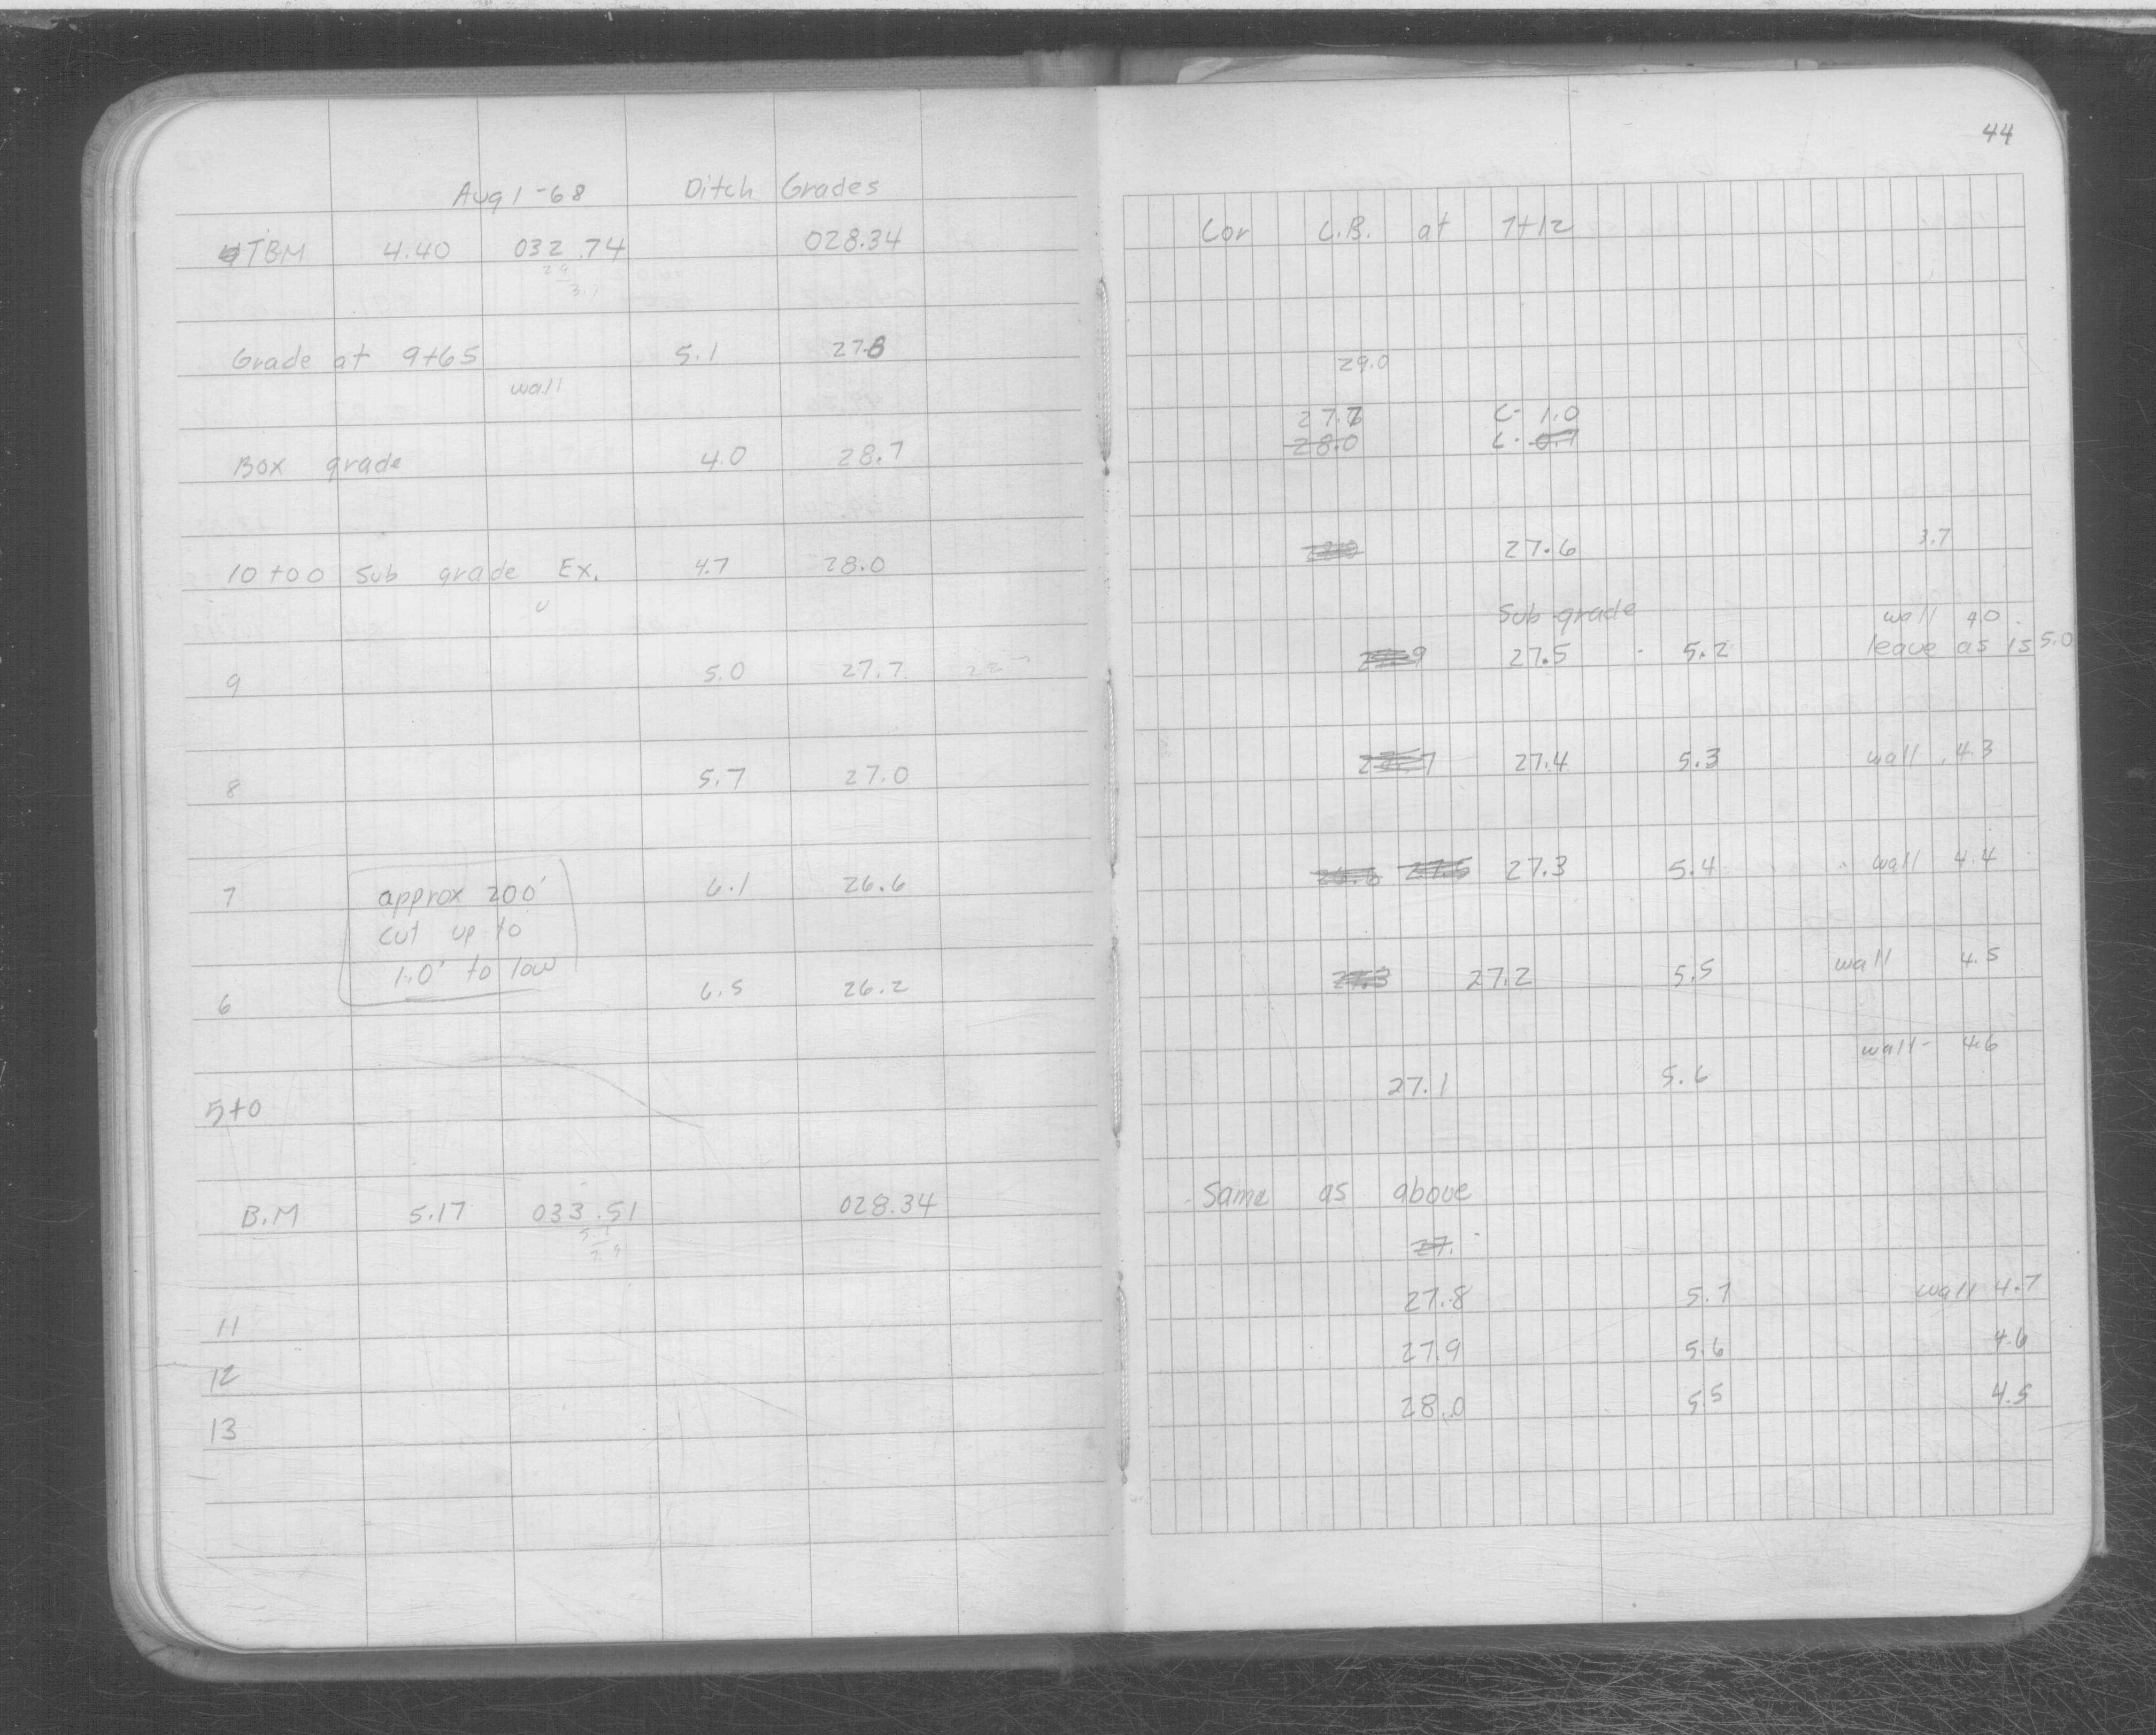 Aug 1-68 Ditch Grades
TBM 4.40 032.74 028.34
29
3.7
Grade at 9+65 5.1 27.6
wall
Box grade 4.0 28.7
10+00 Sub grade Ex. 4.7 28.0
9 5.0 27.7
8 5.7 27.0
7 approx 200' 6.1 26.6
cut up to
1.0' to low
6 6.5 26.2
5+0
B.M 5.17 033.51 028.34
11
12
13
44
Cor C.B. at 7+12
29.0
27.7 C- 1.0
28.0 C-
27.6 3.7
Sub grade wall 4.0
27.5 - 5.2 leave as is 5.0
27.4 5.3 wall 4.3
27.3 5.4 wall 4.4
27.2 5.5 wall 4.5
27.1 5.6 wall- 4.6
Same as above
27.
27.8 5.7 wall 4.7
27.9 5.6 4.6
28.0 5.5 4.5